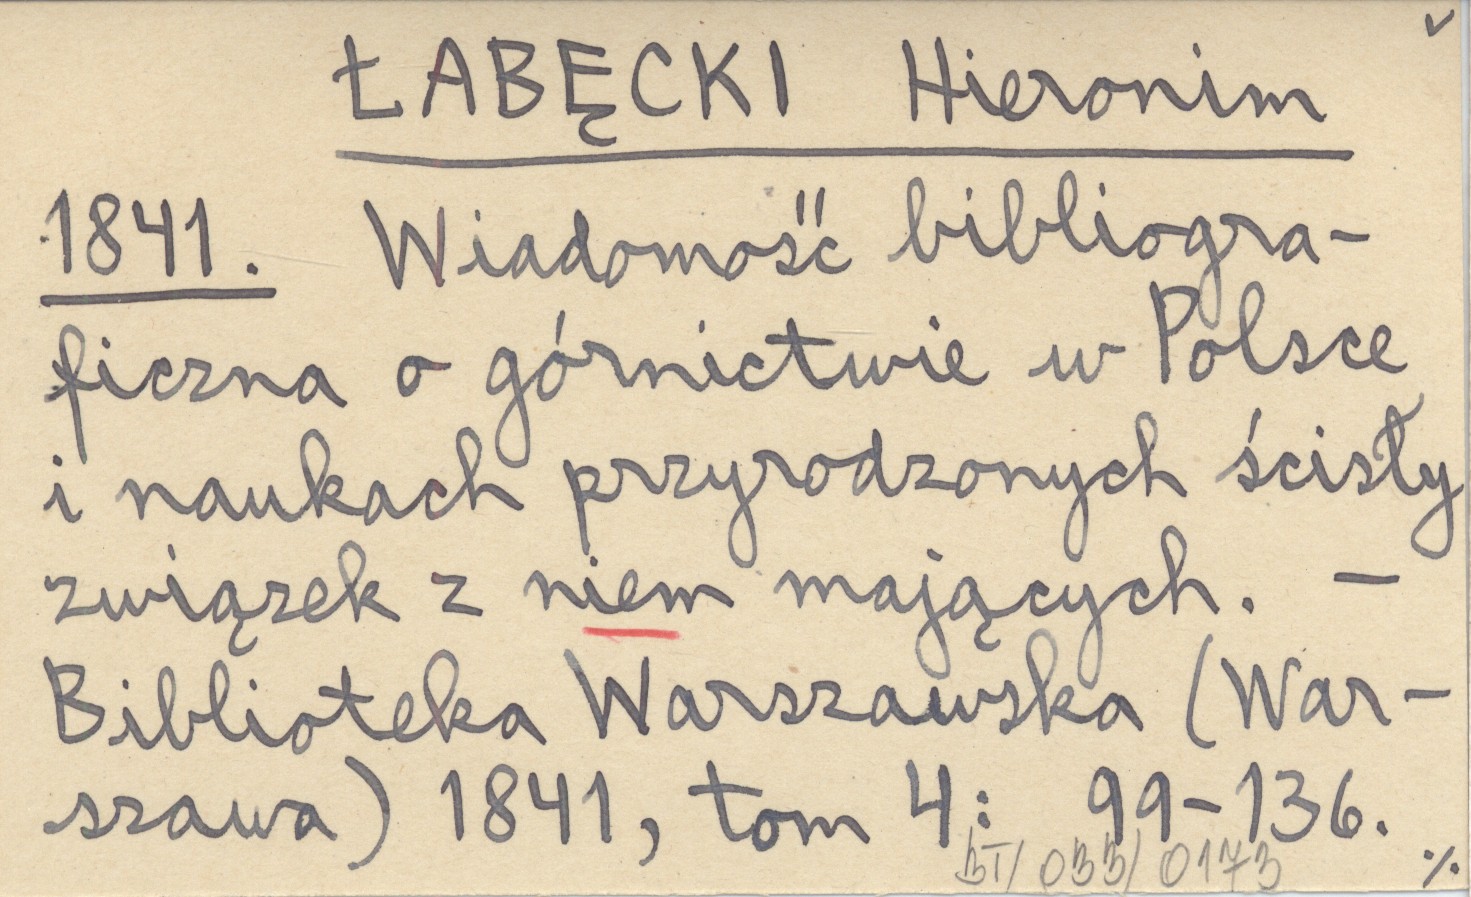 ŁABĘCKI Hieronim
1841. Wiadomość bibliogra-
ficzna o górnictwie w Polsce
i naukach przyrodzonych ścisły
związek z niem mających. —
Biblioteka Warszawska (War-
szawa) 1841, tom 4: 99-136.
BI/033/0173